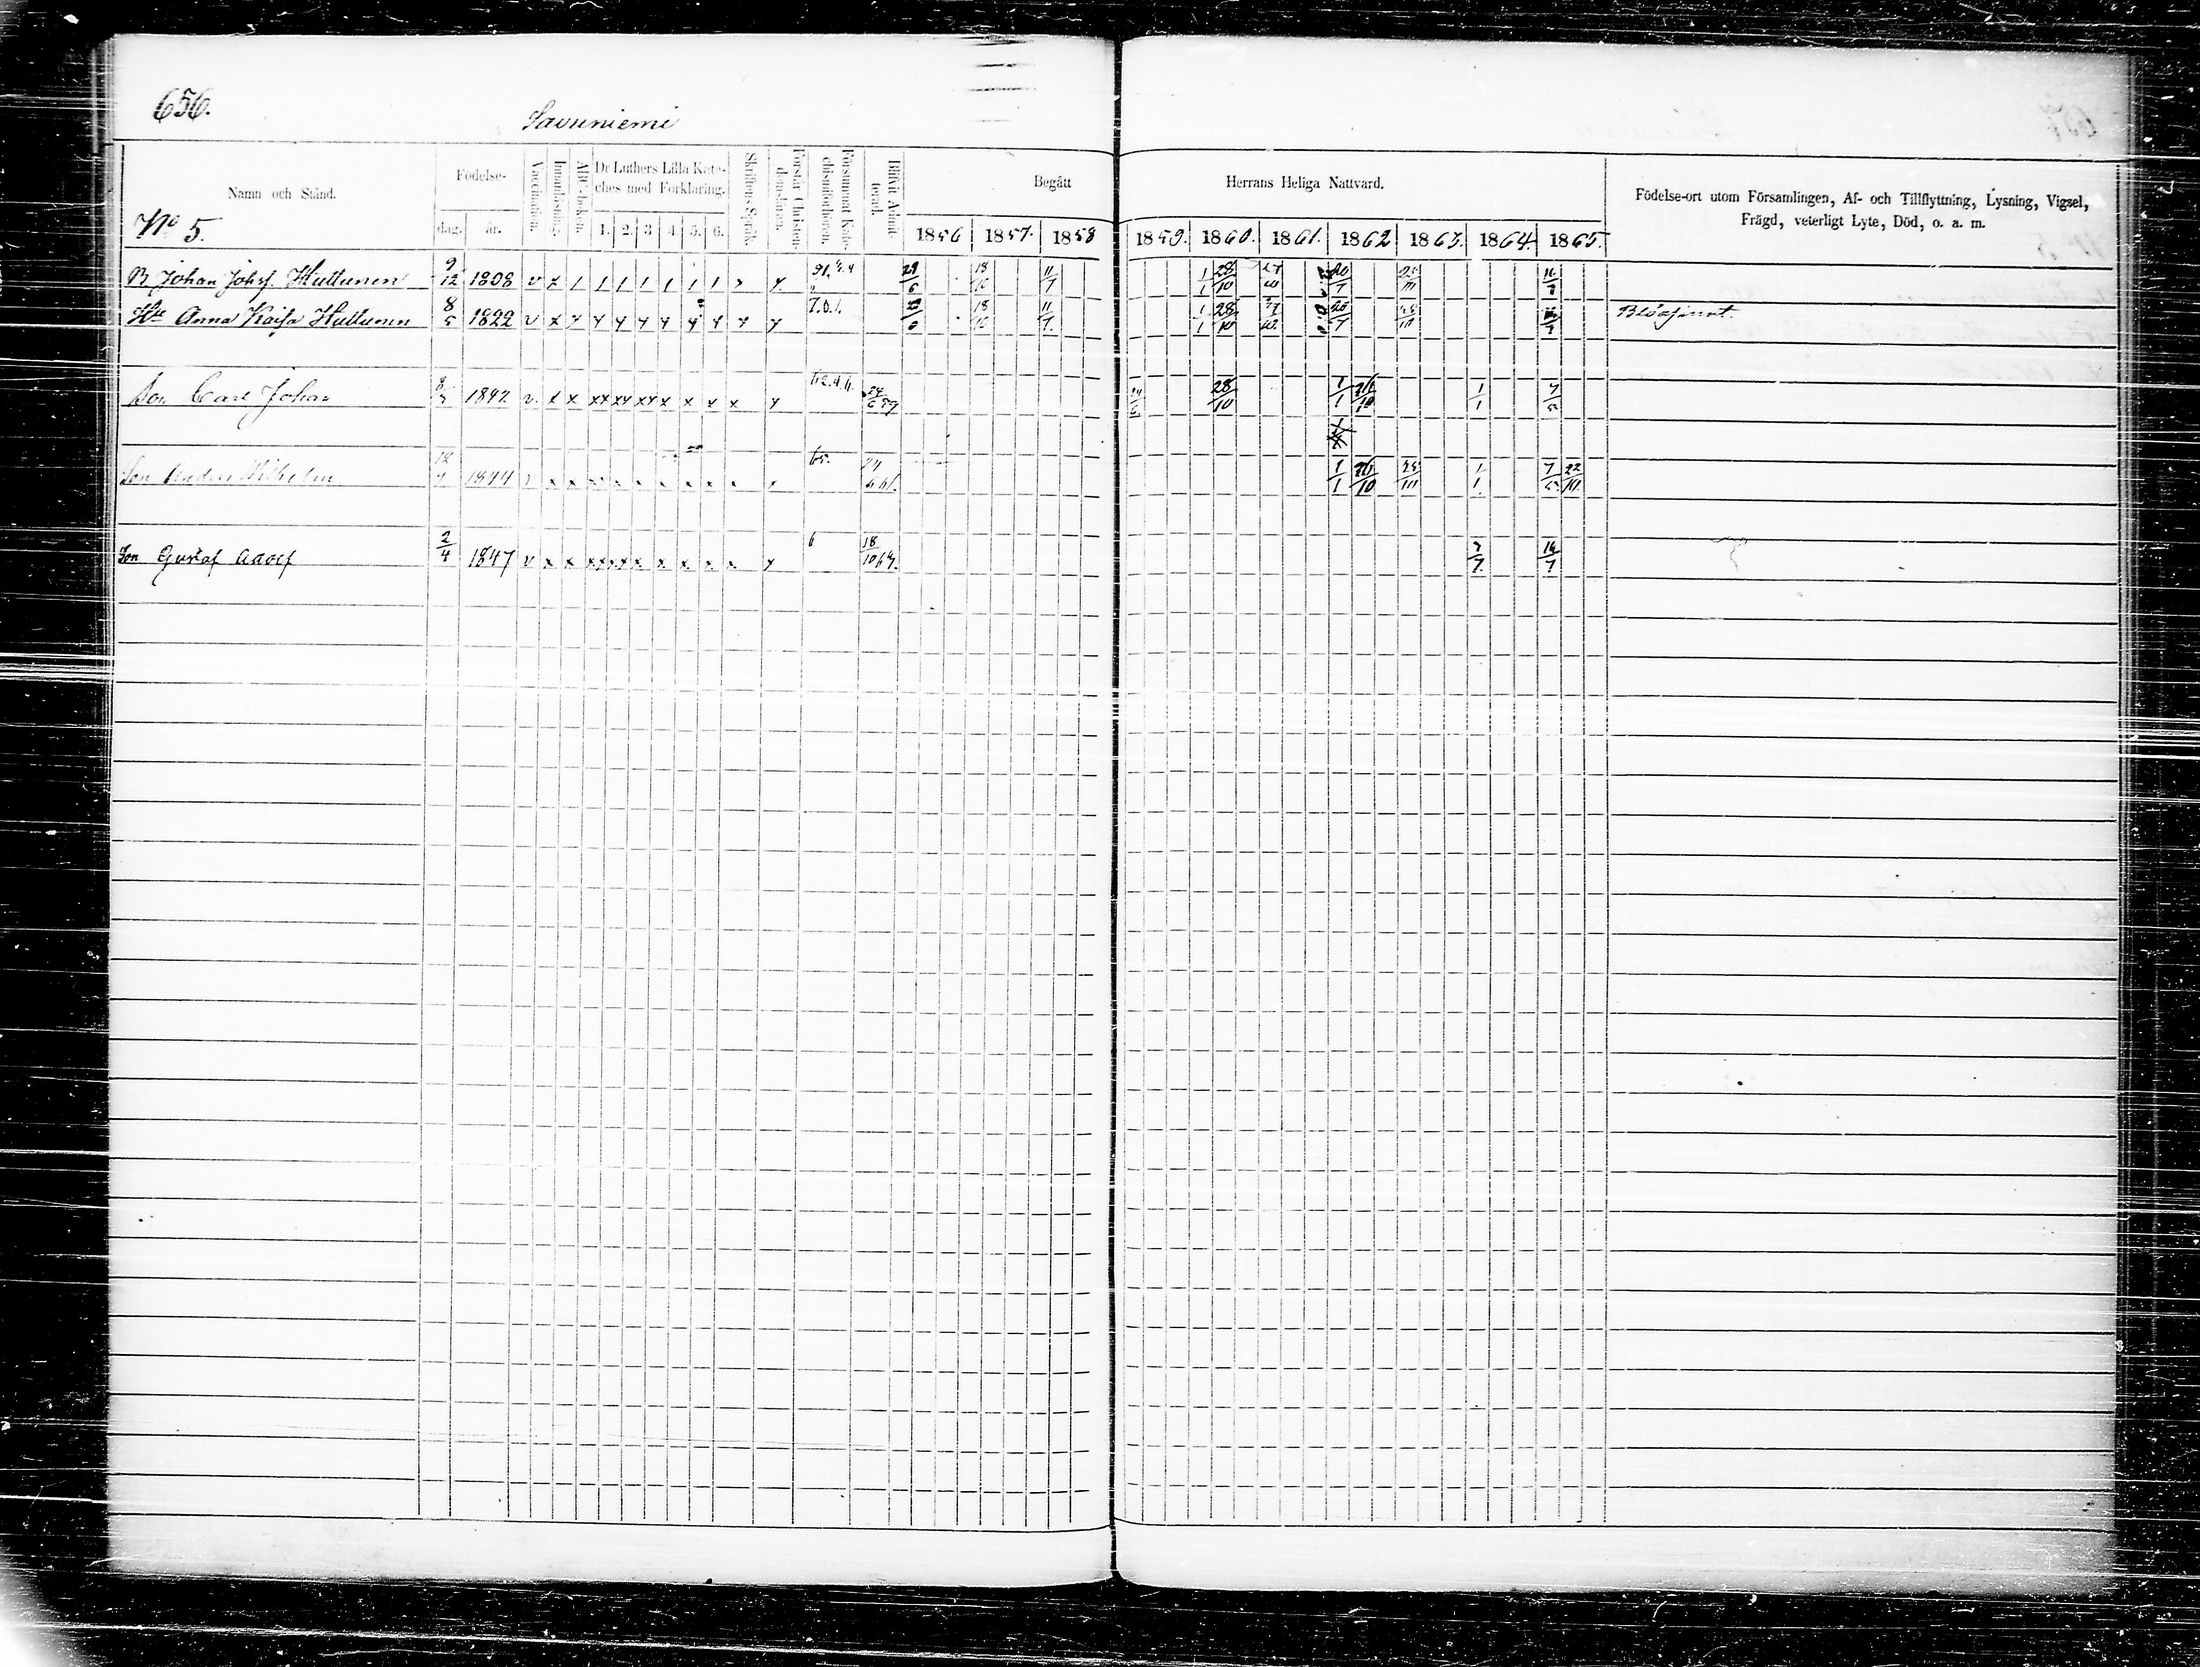 656.
Savuniemi
Namn och Stånd.
Födelse-
dag. år.
Vaccinationen.
Innanläsning.
ABC-boken.
Dr Luthers Lilla Kate-
ches med Förklaring.
1. 2. 3 4. 5. 6.
Skriftens Språk.
Förstår Christen-
domsläran.
Försummat Kate-
chismiförhören.
Blifvit Admit-
terad.
Begått Herrans Heliga Nattvard.
1856 1857. 1858 1859. 1860. 1861. 1862 1863. 1864. 1865.
Födelse-ort utom Församlingen, Af- och Tillflyttning, Lysning, Vigsel,
Frägd, veterligt Lyte, Död, o. a. m.
No 5.
B Johan Johsf. Huttunen 9/12 1808 v x 1 1 1 1 1 1 1 29/6 18/10 11/7 1/1 28/10 20/7 25/10 16/7
Hu Anna Kaisa Huttunen 8/5 1822 v x y y y y y y y y y 7.0.1. 29/6 18/10 11/7. 1/1 28/10 20/7 25/10 16/7
Son Carl Johan 1842 v. x x xx xx xx x x x x y 62.4.6. 24/6 59 24/6 28/10 1/1 26/10 1/1 7/5
Son Anders Wilhelm 1844 65. 24/6 61. 1/1 26/10 25/10 1/1. 7/5 22/10.
Son Gustaf Adolf 2/4 1847 v x x xx xx x x x x x y 6 18/10 64. 7/7 16/7